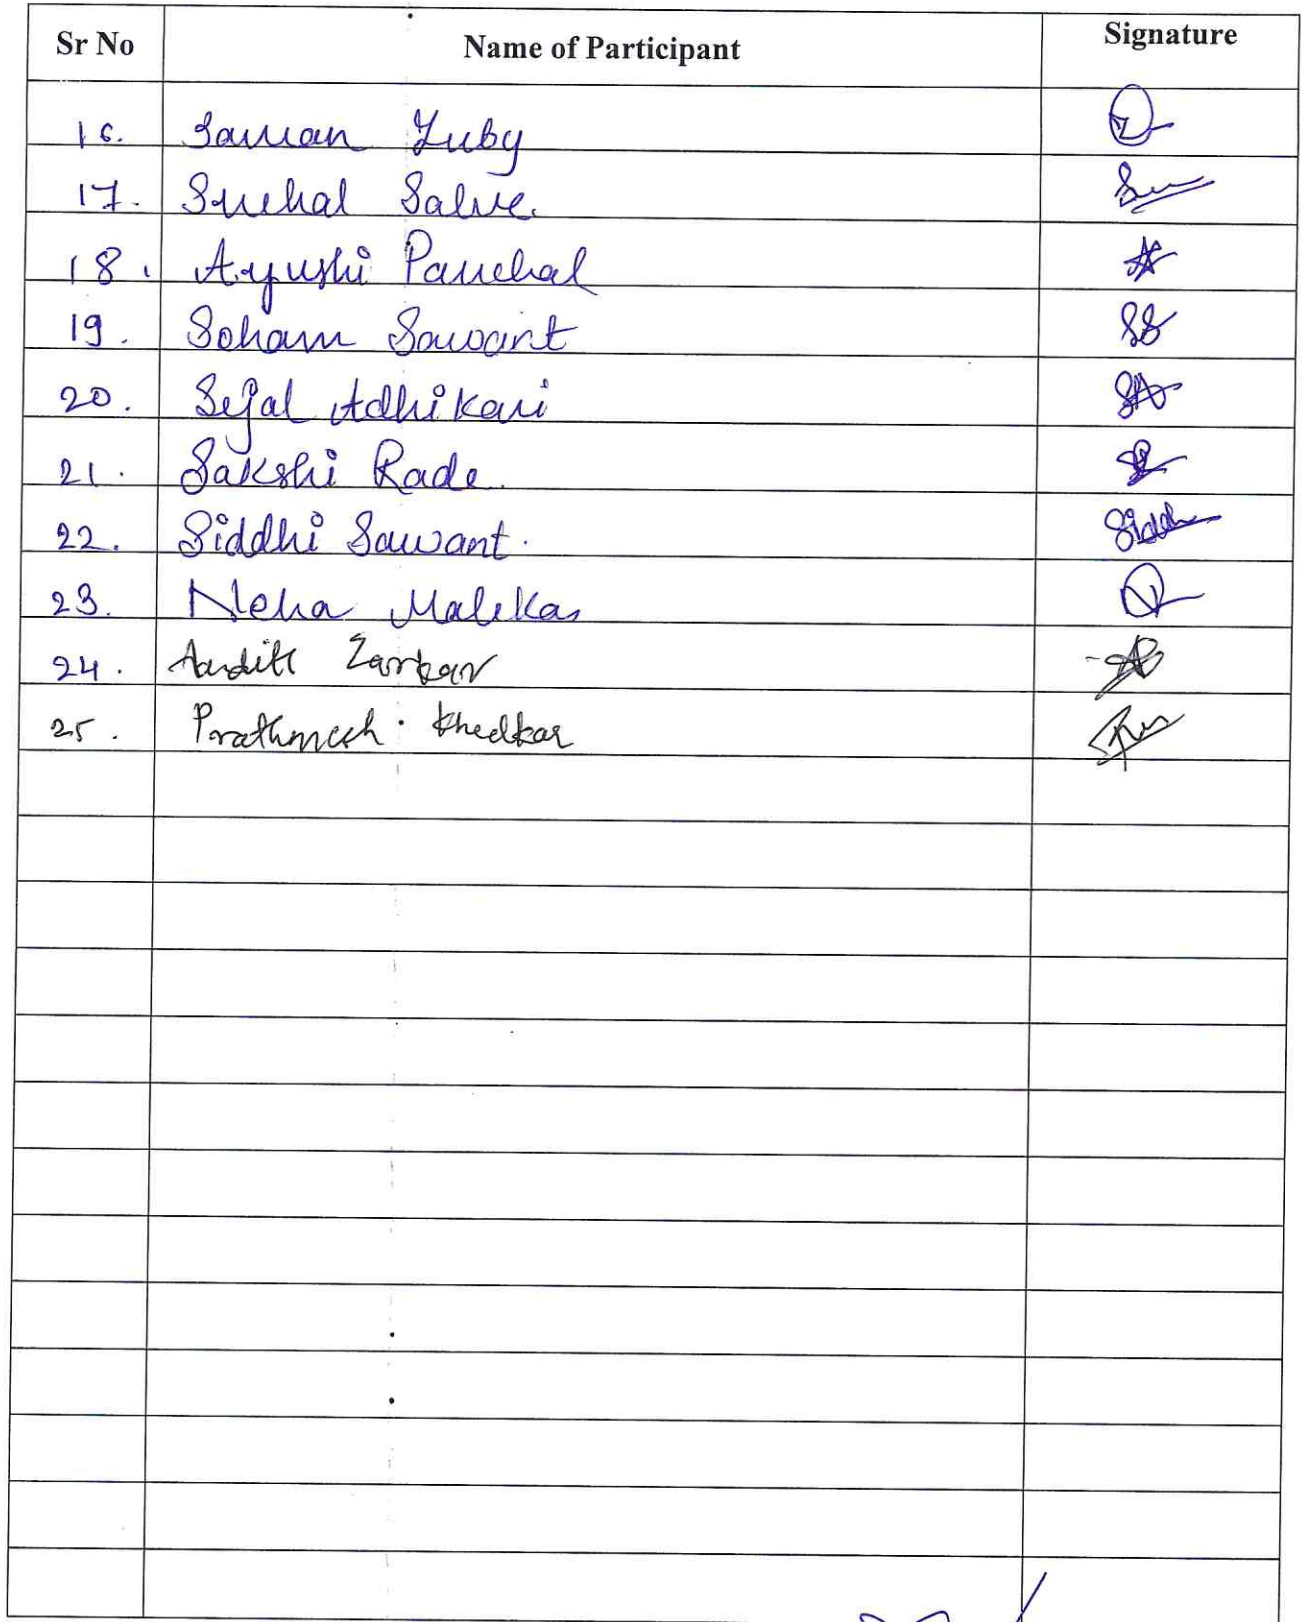 Sr No Name of Participant Signature
16. Saman Zuby
17. Snehal Salve.
18. Ayushi Panchal
19. Soham Sawant SS
20. Sejal Adhikari SA
21. Sakshi Rade.
22. Siddhi Sawant. Siddh
23. Neha Malekar
24. Zarkar
25. Prathmesh. Khedkar